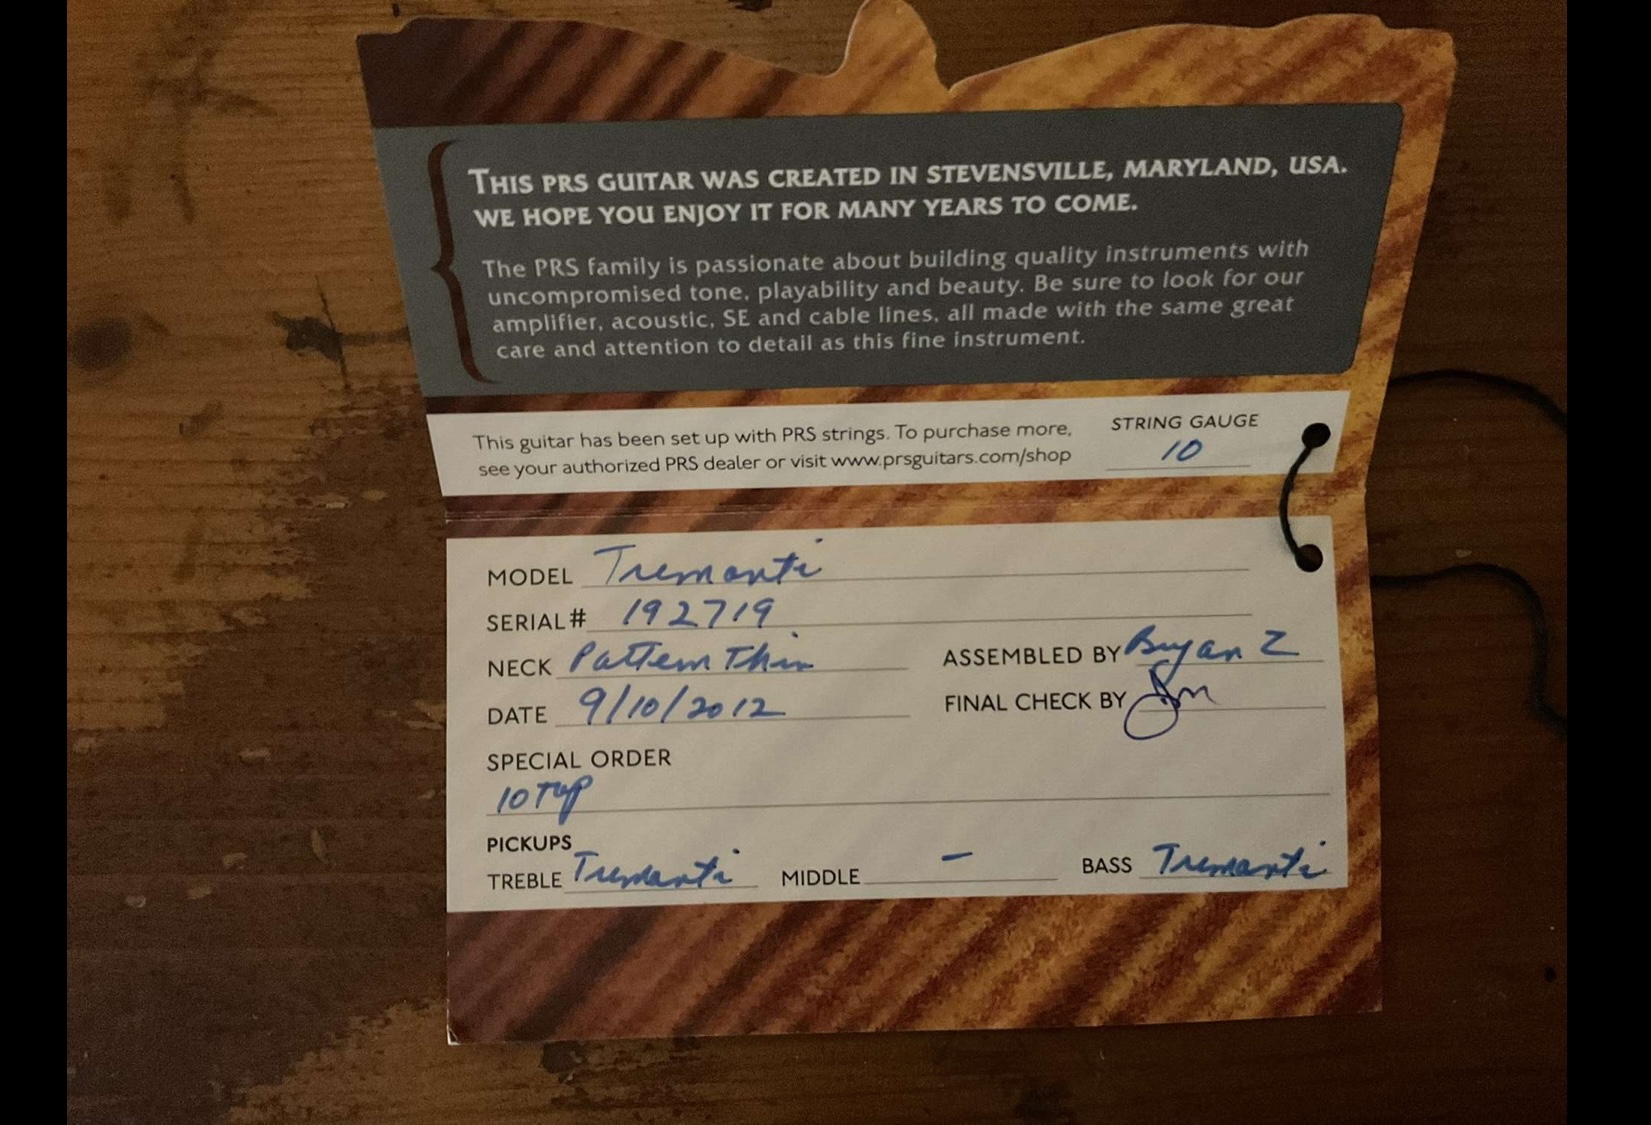 THIS PRS GUITAR WAS CREATED IN STEVENSVILLE, MARYLAND, USA.
WE HOPE YOU ENJOY IT FOR MANY YEARS TO COME.
The PRS family is passionate about building quality instruments with
uncompromised tone, playability and beauty. Be sure to look for our
amplifier, acoustic, SE and cable lines, all made with the same great
care and attention to detail as this fine instrument.
This guitar has been set up with PRS strings. To purchase more,
see your authorized PRS dealer or visit www.prsguitars.com/shop
STRING GAUGE
10
MODEL Tremonti
SERIAL# 192719
NECK Pattern Thin
ASSEMBLED BY Bryan Z
DATE 9/10/2012
FINAL CHECK BY
SPECIAL ORDER
10 Top
PICKUPS
TREBLE Tremonti MIDDLE – BASS Tremonti